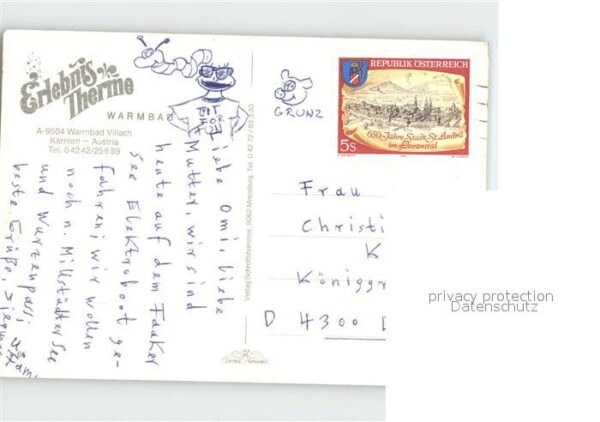 Erlebnis
Therme
WARMBAD
A-9504 Warmbad Villach
Kärnten – Austria
Tel. 04242/25889
FIT
FOR
GRUNZ
REPUBLIK ÖSTERREICH
650-Jahre-Stadt-St. Andrä
im Lavanttal
5s
Liebe Omi, liebe
Mutter, wir sind
heute auf dem Faaker
See Elektroboot ge-
fahren; wir wollen
noch n. Millstädter See
und Wurzenpass,
beste Grüße,
Verlag Schroffshammer, 9062 Moosburg, Tel. 0 42 72 / 83 3 90
Frau
Christi
K
Königgr
D 4300
privacy protection
Datenschutz